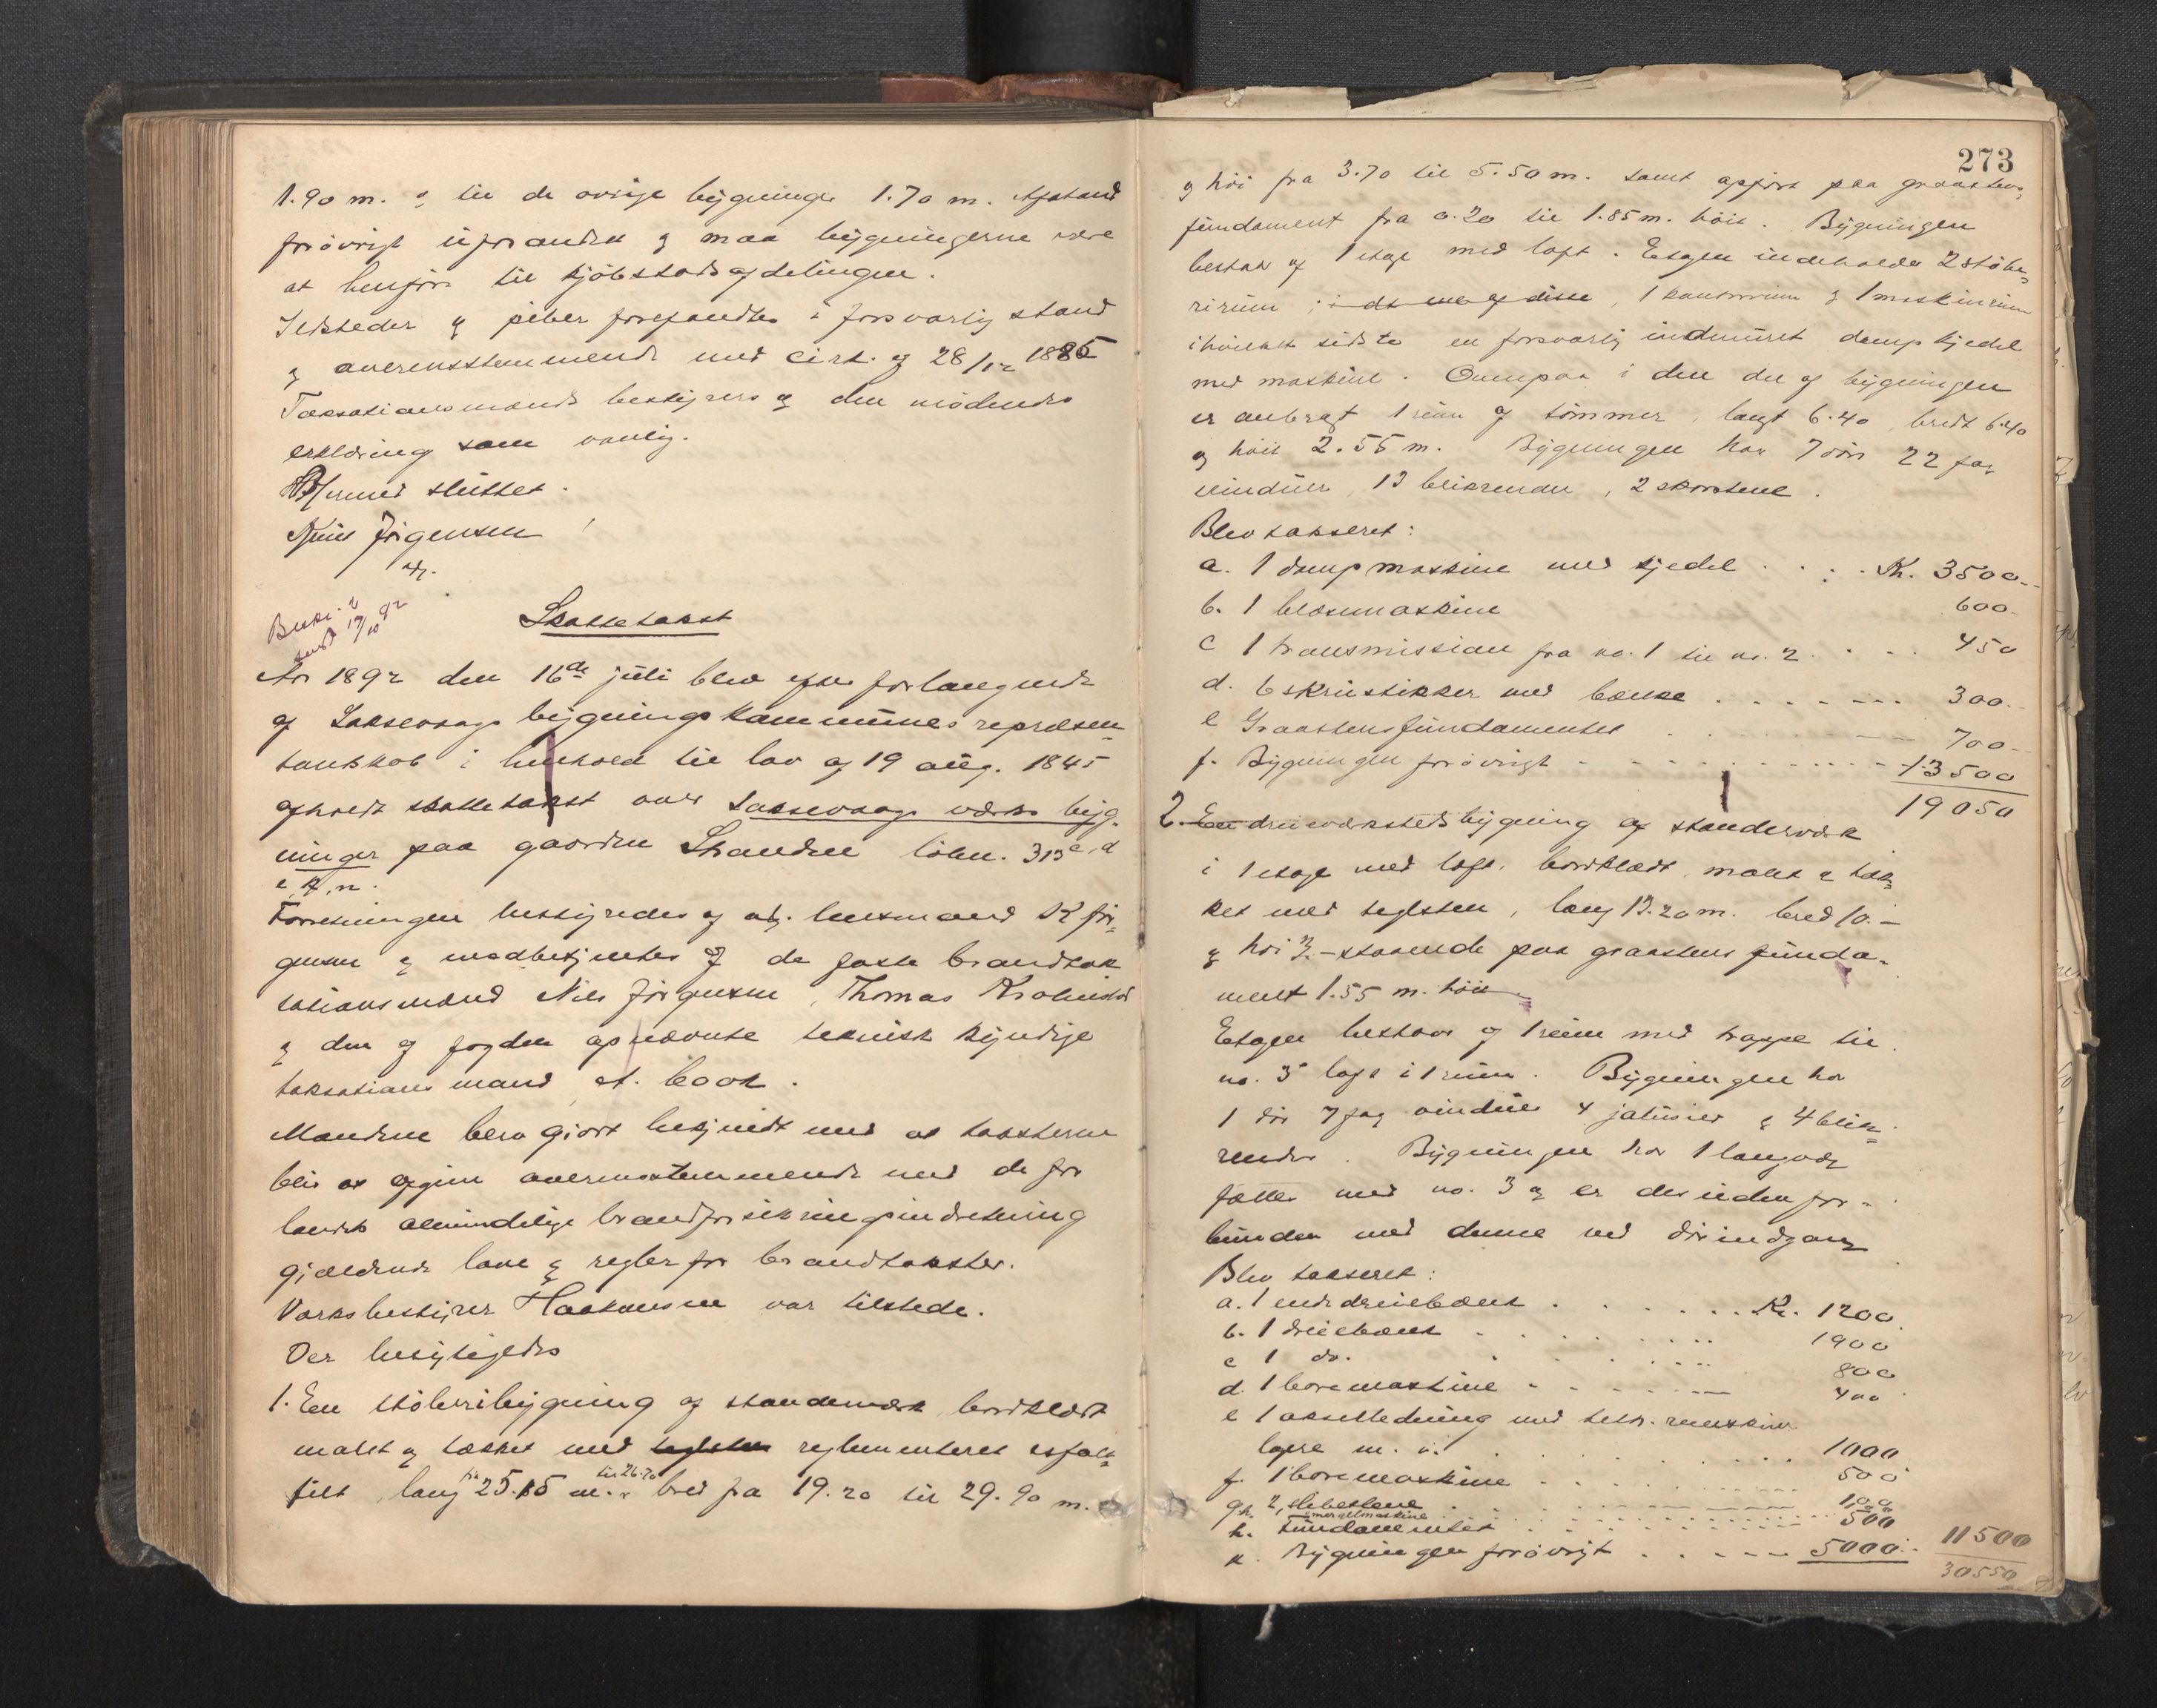 1.90 m. og til de øvrige bygninger 1.70 m. Afstand
forøvrigt uforandret og maa bygningerne være
at henføre til kjøbstadsafdelingen.
Ildsteder og piber forefandtes i forsvarlig stand
og overensstemmende med cirk. af 28/12 1885
Taxsationsmænds bestyrers og den mødendes
erklæring som vanlig.
Hermed sluttet.
Jörgensen
Skattetakst
Aar 1892 den 16de juli blev efter forlangende
af Laksevaags bygningskommunes repræsen-
tantskab i henhold til lov af 19 aug. 1845
afholdt skattetakst over Laksevaags værks byg-
ninger paa gaarden Skanden löbn. 313 c, d
e, k, n.
Forretningen bestyredes af adj. lensmand K Jör-
gensen og medbetjentes af de faste brandtak
sationsmænd Nils Jörgensen, Thomas
og den af fogden opnævnte teknisk kyndige
taksationsmand A. Cook.
Mændene blev gjort bekjendt med at taksterne
blir at afgive overensstemmende med de for
landets almindelige brandforsikringsindretning
gjældende love og regler for brandtakster.
Værksbestyrer Haakonsen var tilstede.
Der besigtigedes
1. En støberibygning af standerværk bordklædt
malet og tækket med teglsten reglementeret asfalt-
filt, lang fra 25.15 m. til 26.70 bred fra 19.20 til 29.90 m.
273
og höi fra 3.70 til 5.50 m. samt opført paa graastens-
fundament fra 0.20 til 1.85 m. höit. Bygningen
bestaar af 1 etage med loft. Etagen indeholder 2 støbe-
rirum, i det ene af disse, 1 kontorrum og 1 maskinrum
ihvilket sidste en forsvarlig indmuret dampkjedel
med maskine. Ovenpaa i den del af bygningen
er anbragt 1 rum af tömmer, langt 6.40, bredt 6.40
og höit 2.55 m. Bygningen har 7 döre 22 fag
vinduer, 13 blikrender, 2 skorstene.
Blev takseret:
a. 1 dampmaskine med kjedel . . . . Kr. 3500.-
b. 1 blæsemaskine 600.-
c 1 transmission fra no. 1 til no. 2 . . . 450
d. 6 skruestikker med bænke . . . . . . . 300.-
e Graastensfundamentet . . . . . 700.-
f. Bygningen forøvrigt . . . . . . . . . . 13500
19050
2. En dreieværkstedsbygning af standerværk
i 1 etage med loft, bordklædt, malet og tæk-
ket med teglsten, lang 13.20 m. bred 10.-
og höi 3.- staaende paa graastens funda-
ment 1.55 m. höit.
Etagen bestaar af 1 rum med trappe til
no. 3 loft i 1 rum. Bygningen har
1 dör 7 fag vinduer 4 jalusier og 4 blik-
render. Bygningen har 1 langvæg
fælles med no. 3 og er desuden for-
bunden med denne ved dörindgang
Blev takseret:
a. 1 ende dreiebænk . . . . . . Kr. 1200
b. 1 dreiebænk . . . . . . . 1900
c 1 do. . . . . . 800
d. 1 boremaskine . . . . . . 400
e 1 akselledning med
lagere m. v. . . . . . . 1000
f. 1 boremaskine . . . . . . 500
g. 2 slibestene . . . . . . 100
h. Fundamentet . . . . . . 500
k. Bygningen forøvrigt . . . . . 5000.- 11500
30550